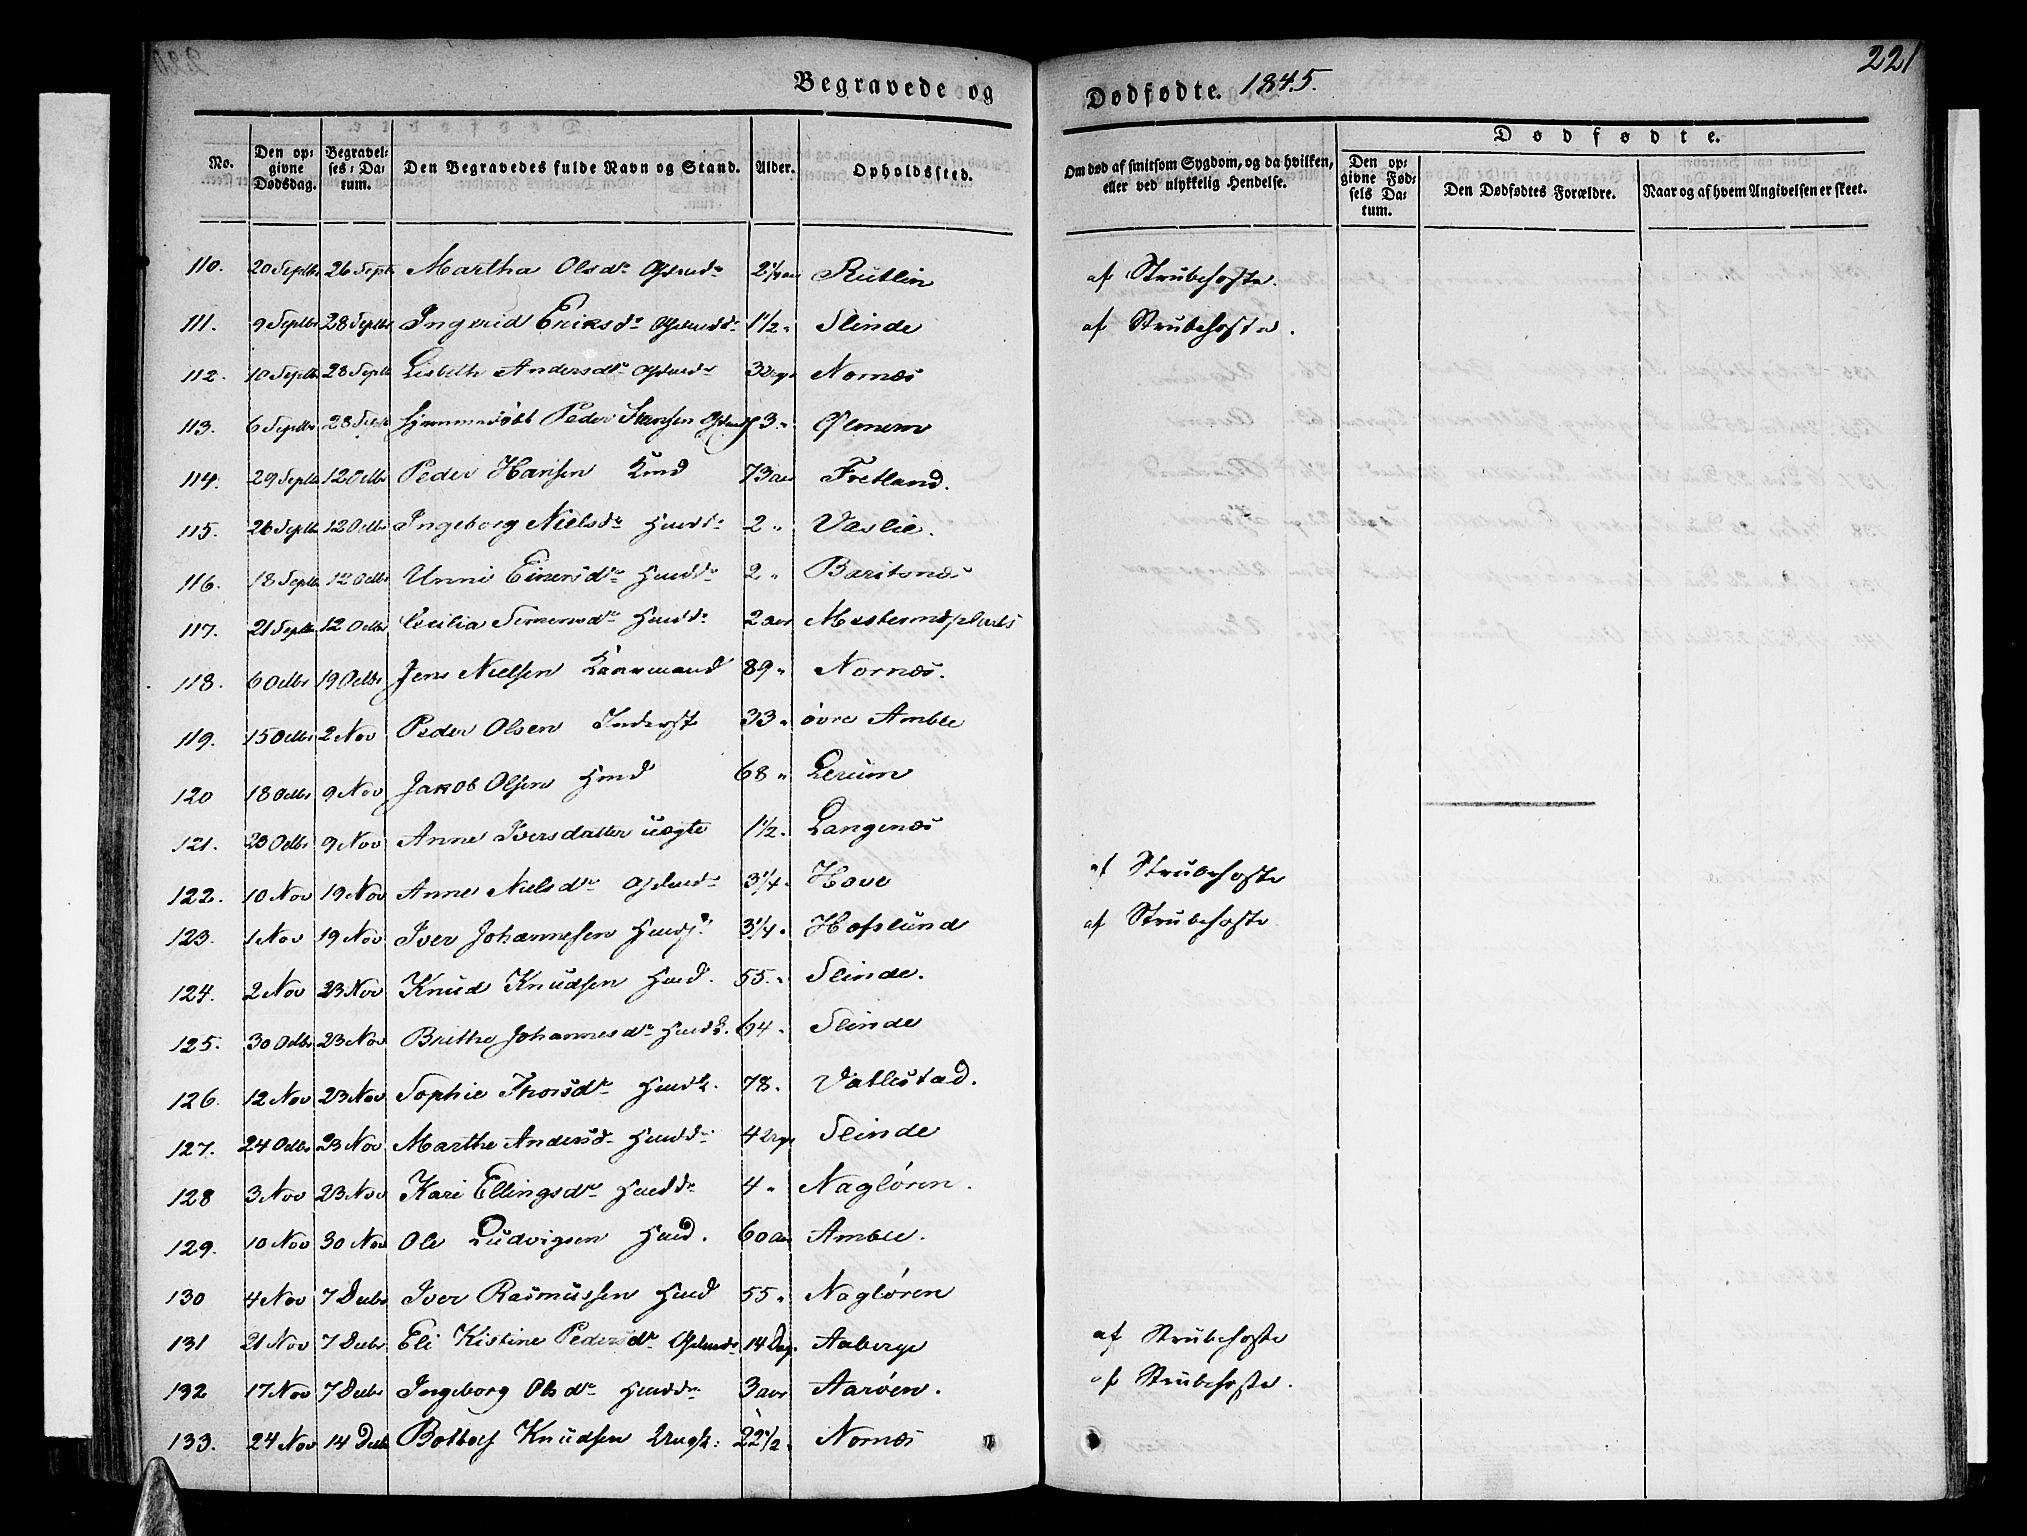 221
Begravede og Dødfødte. 1845.
Dødfødte.
No. Den opgivne Dødsdag. Begravelses-Datum. Den Begravedes fulde Navn og Stand. Alder. Opholdssted. Om død af smitsom Sygdom, og da hvilken, eller ved ulykkelig Hendelse. Den opgivne Fødsels Datum. Den Dødfødtes Forældre. Naar og af hvem Angivelsen er skeet.
110. 20 Septbr 26 Septbr Martha Olsdr Rutlin af Strubehoste.
111. 9 Septbr 28 Septbr Ingerid Eriksdr 1½ " Slinde af Strubehoste.
112. 10 Septbr 28 Septbr Lisbeth Andersdtr 3 Uger Nornæs
113. 6 Septbr 28 Septbr Hjemmedøbt Peder 3 "
114. 29 Septbr 12 Octbr Peder Hansen Kmd 73 aar Fretland.
115. 26 Septbr 12 Octbr Ingeborg Nielsdr 2 " Vaslie.
116. 18 Septbr 12 Octbr Unni Einersdr Huusdr 2 "
117. 21 Septbr 12 Octbr Cecilia Simensdr Huusdr 2 aar
118. 6 Octbr 19 Octbr Jens Nielsen Kaarmand 89 " Nornæs.
119. 15 Octbr 2 Nov Peder Olsen Inderst 33 " øvre Amble
120 18 Octbr 9 Nov Jakob Olsen Hmd 68 " Lerum
121. 20 Octbr 9 Nov Anne Iversdatter uægte 1½ " Langenæs
122. 10 Nov 19 Nov Anne Nielsdr 3¼ " Hove af Strubehoste
123. 1 Nov 19 Nov Iver Johannesen 3¼ " Hofslund af Strubehoste
124. 2 Nov 23 Nov Knud Knudsen Hmd. 55 " Slinde.
125. 30 Octbr 23 Nov Brithe Johannesdr 64 " Slinde
126. 12 Nov 23 Nov Sophie Thorsdr 78 " Vatlestad.
127. 24 Octbr 23 Nov Marthe Andersd Huusdr 4 Uger Slinde
128 3 Nov 23 Nov Kari Ellingsdr Huusdr 4 " Nagløren.
129. 10 Nov 30 Nov Ole Ludvigsen Hmd. 60 aar Amble.
130 4 Nov 7 Decbr Iver Rasmussen Hmd 55 " Nagløren
131 21 Nov 7 Decbr Eli Kistine Pedersdr 14 Dage Aaberge af Strubehoste
132 17 Nov 7 Decbr Ingeborg Olsdr Huusdr 3 aar Aarøen. af Strubehoste.
133. 24 Nov 14 Decbr Botholf Knudsen Ungk: 22½ " Nornæs